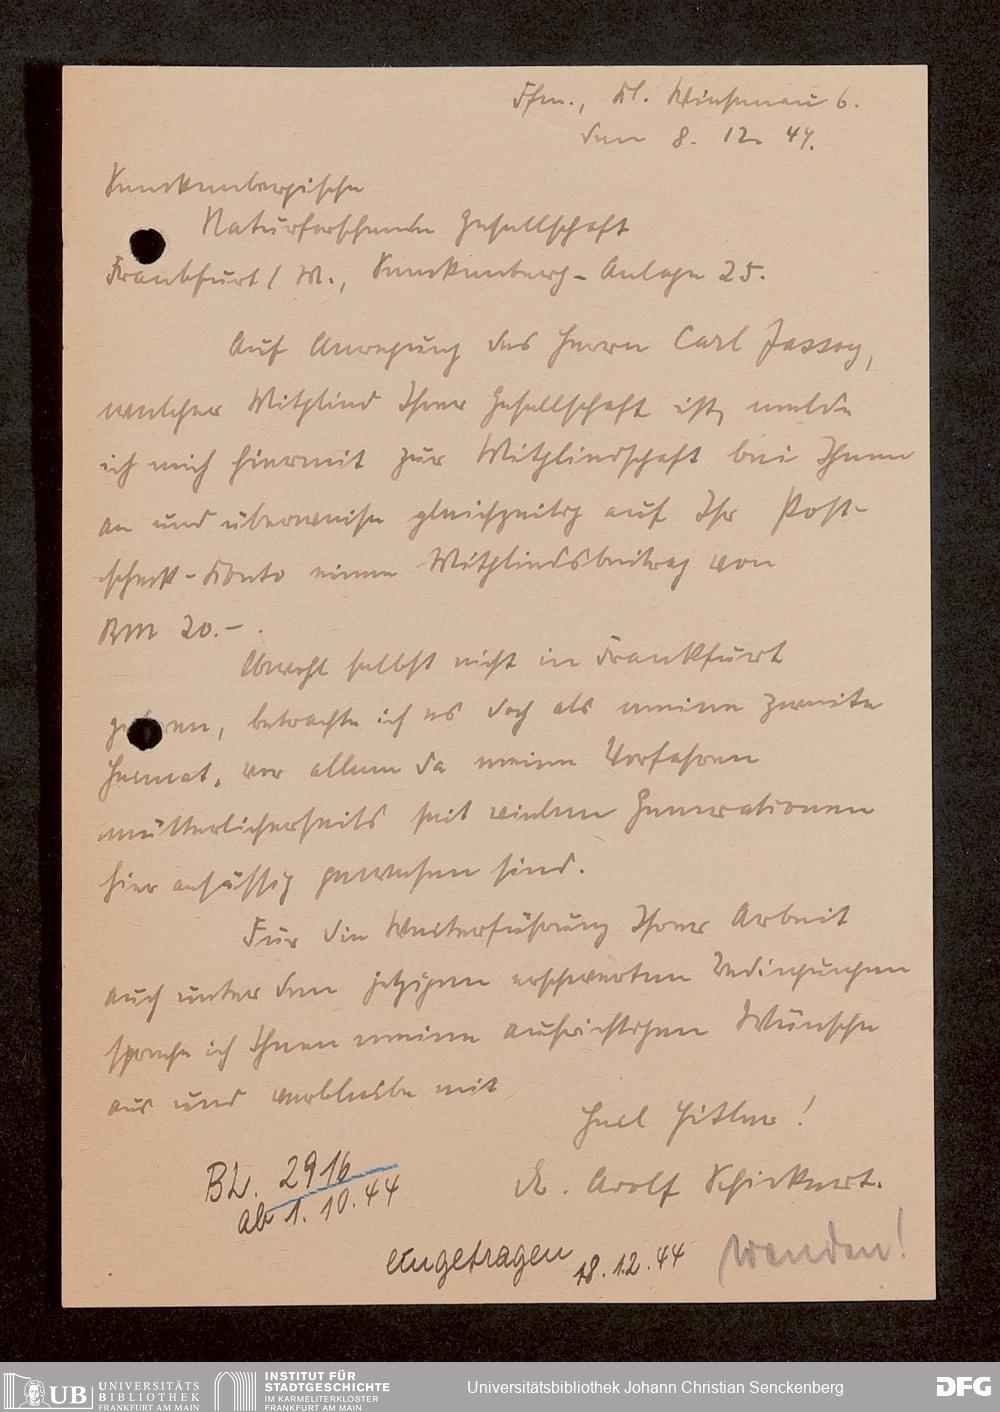 Ffm., Kl. Wiesenau 6.
den 8. 12. 44.
Senckenbergische
Naturforschende Gesellschaft
Frankfurt / M., Senckenberg-Anlage 25.
Auf Anregung des Herrn Carl Jassoy,
welcher Mitglied Ihrer Gesellschaft ist, melde
ich mich hiermit zur Mitgliedschaft bei Ihnen
an und überweise gleichzeitig auf Ihr Post-
scheck-Konto einen Mitgliedsbeitrag von
RM 20.-.
Obwohl selbst nicht in Frankfurt
geboren, betrachte ich es doch als meine zweite
Heimat, vor allem da meine Vorfahren
mütterlicherseits seit vielen Generationen
hier ansässig gewesen sind.
Für die Weiterführung Ihrer Arbeit
auch unter den jetzigen erschwerten Bedingungen
spreche ich Ihnen meine aufrichtigen Wünsche
aus und verbleibe mit
Heil Hitler!
Dr. Adolf Schickert.
BL. 2916
ab 1. 10. 44
eingetragen 18.12.44
wenden!
UB UNIVERSITÄTS
BIBLIOTHEK
FRANKFURT AM MAIN
INSTITUT FÜR
STADTGESCHICHTE
IM KARMELITERKLOSTER
FRANKFURT AM MAIN
Universitätsbibliothek Johann Christian Senckenberg
DFG